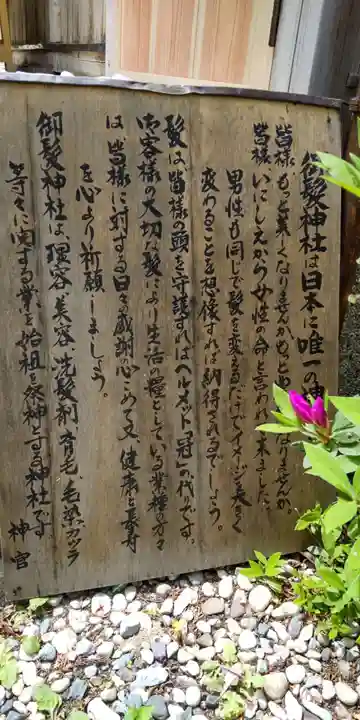 御髪神社は日本に唯一の神
皆様もっと美くなりませんか、もっと
なりませんか、
皆様、いにしえから女性の命と言われて来ました、
男性も同じで髪を変るだけでイメージも大きく
変わることを想像すれば納得されるでしょう。
髪は皆様の頭を守護すればヘルメット「冠」の代りです。
お客様の大切な髪により生活の糧としている業種の方々
は皆様に対する日々感謝の心こめて又、健康と長寿
を心より祈願しましょう。
御髪神社は、理容、美容、洗髪剤、育毛、毛染、カツラ
等々に関する業を始祖を祭神とする神社です
神官